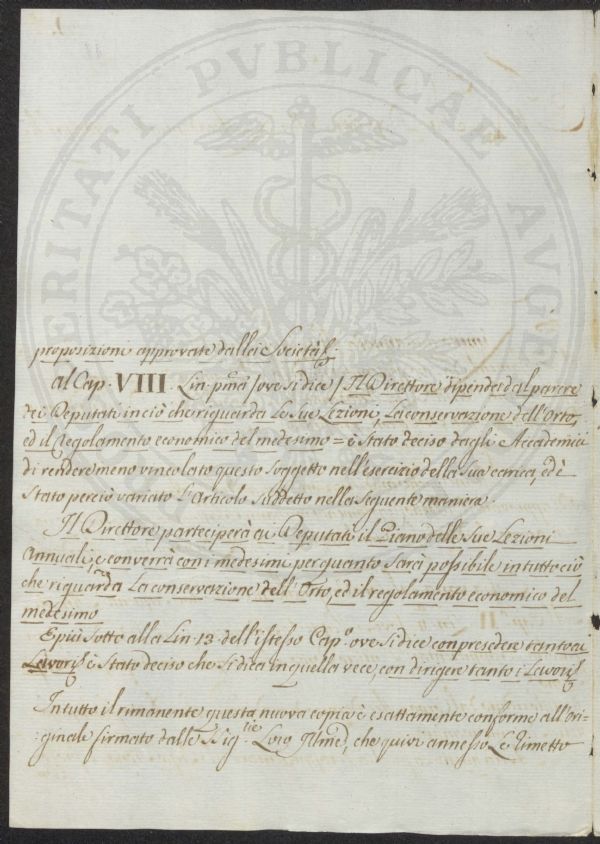 PROSPERITATI PVBLICAE AVGENDAE
proposizioni approvate dalla Società.
al Cap. VIII. Lin. pma /ove si dice/ Il Direttore dipenda dal parere
dei Deputati in ciò che riguarda Le Sue Lezioni, La conservazione dell'Orto,
ed il Regolamento economico del medesimo = è Stato deciso dagli Accademici
di rendere meno vincolato questo Soggetto nell'esercizio della Sua carica, ed è
Stato perciò variato L'Articolo Suddetto nella Seguente maniera.
Il Direttore parteciperà ai Deputati il Piano delle Sue Lezioni
Annuali, e converrà con i medesimi per quanto Sarà possibile in tutto ciò
che riguarda La conservazione dell'Orto, ed il regolamento economico del
medesimo
E più Sotto alla Lin. 13. dell'istesso Capo. ove Si dice con presedere tanto ai
Lavori è Stato deciso che Si dica in quella vece, con dirigere tanto i Lavori
In tutto il rimanente questa nuova copia è esattamente conforme all'Ori-
:ginale firmato dalle Sig.rie Loro Illme, che quivi annesso Le rimetto